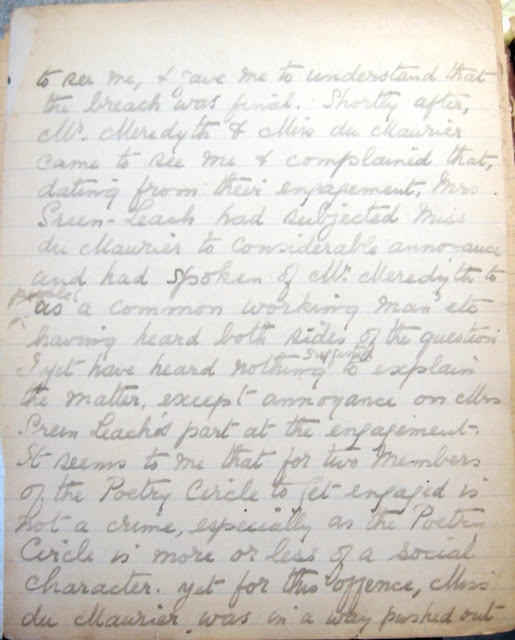 to see me, & gave me to understand that
the breach was final. Shortly after,
Mr. Meredyth & Miss du Maurier
came to see me & complained that,
dating from their engagement, Mrs.
Preen-Leach had subjected Miss
du Maurier to considerable annoyance
and had spoken of Mr. Meredyth to
people
as a common working man etc
having heard both sides of the question
I yet have heard nothing sufficient to explain
the matter, except annoyance on Mrs
Preen Leach's part at the engagement.
It seems to me that for two members
of the Poetry Circle to get engaged is
not a crime, especially as the Poetry
Circle is more or less of a social
character. yet for this offence, Miss
du Maurier was in a way pushed out